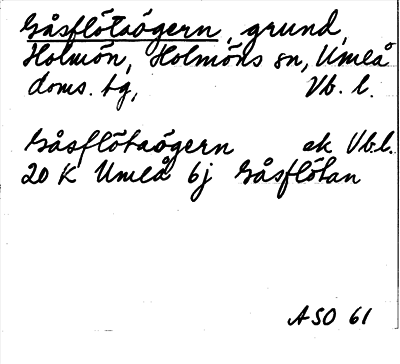 Gåsflötaögern, grund,
Holmön, Holmöns sn, Umeå
doms. tg, Vb. l.
Gåsflötaögern ek Vb.l.
20 K Umeå 6j Gåsflötan
ASO 61